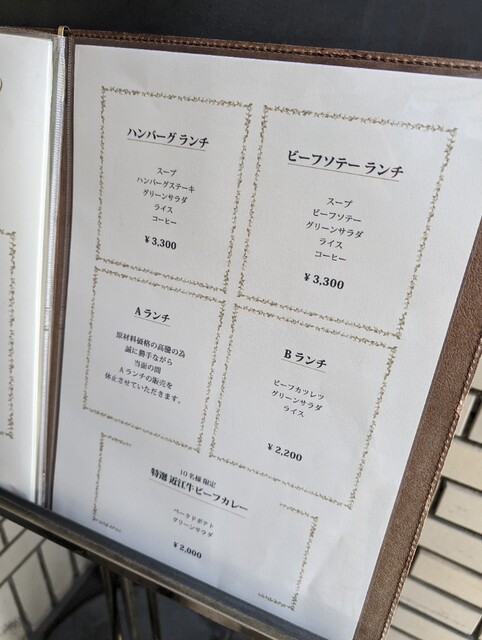 ハンバーグ ランチ
スープ
ハンバーグステーキ
グリーンサラダ
ライス
コーヒー
¥3,300
ビーフソテー ランチ
スープ
ビーフソテー
グリーンサラダ
ライス
コーヒー
¥3,300
A ランチ
原材料価格の高騰の為
誠に勝手ながら
当面の間
Aランチの販売を
休止させていただきます。
B ランチ
ビーフカツレツ
グリーンサラダ
ライス
¥2,200
10名様限定
特選 近江牛ビーフカレー
ベークドポテト
グリーンサラダ
¥2,000